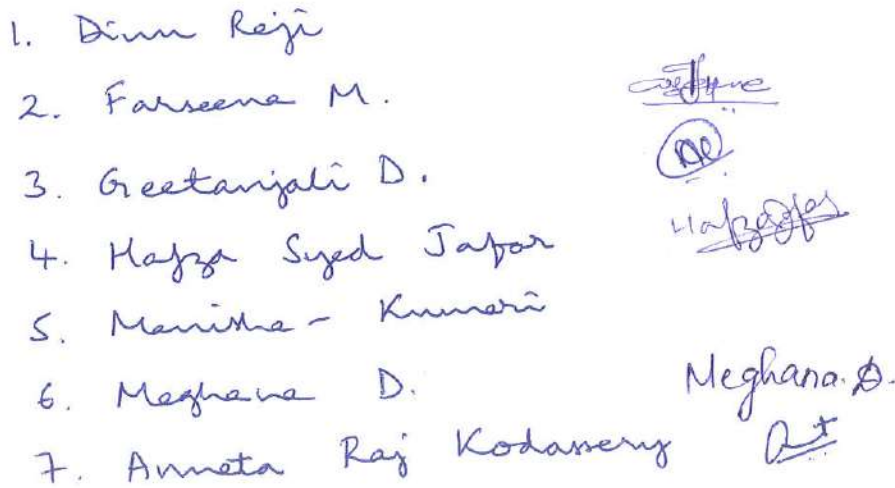 1. Dinu Reji
2. Farseena M.
3. Geetanjali D.
4. Hafza Syed Jafar Hafzajafar
5. Manisha - Kumari
6. Meghana D. Meghana. D.
7. Anneta Raj Kodassery